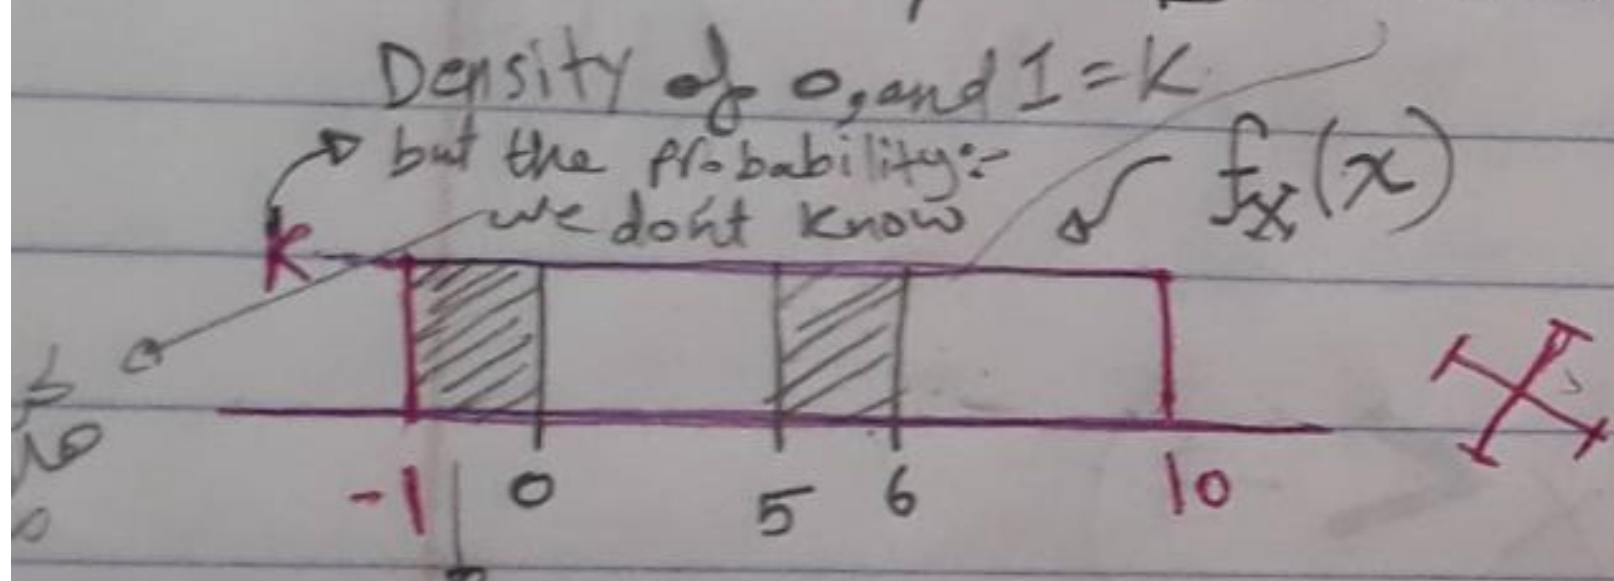 Density of 0, and 1 = K
but the probability:-
we don't know
f_X(x)
K
-1 0 5 6 10
X